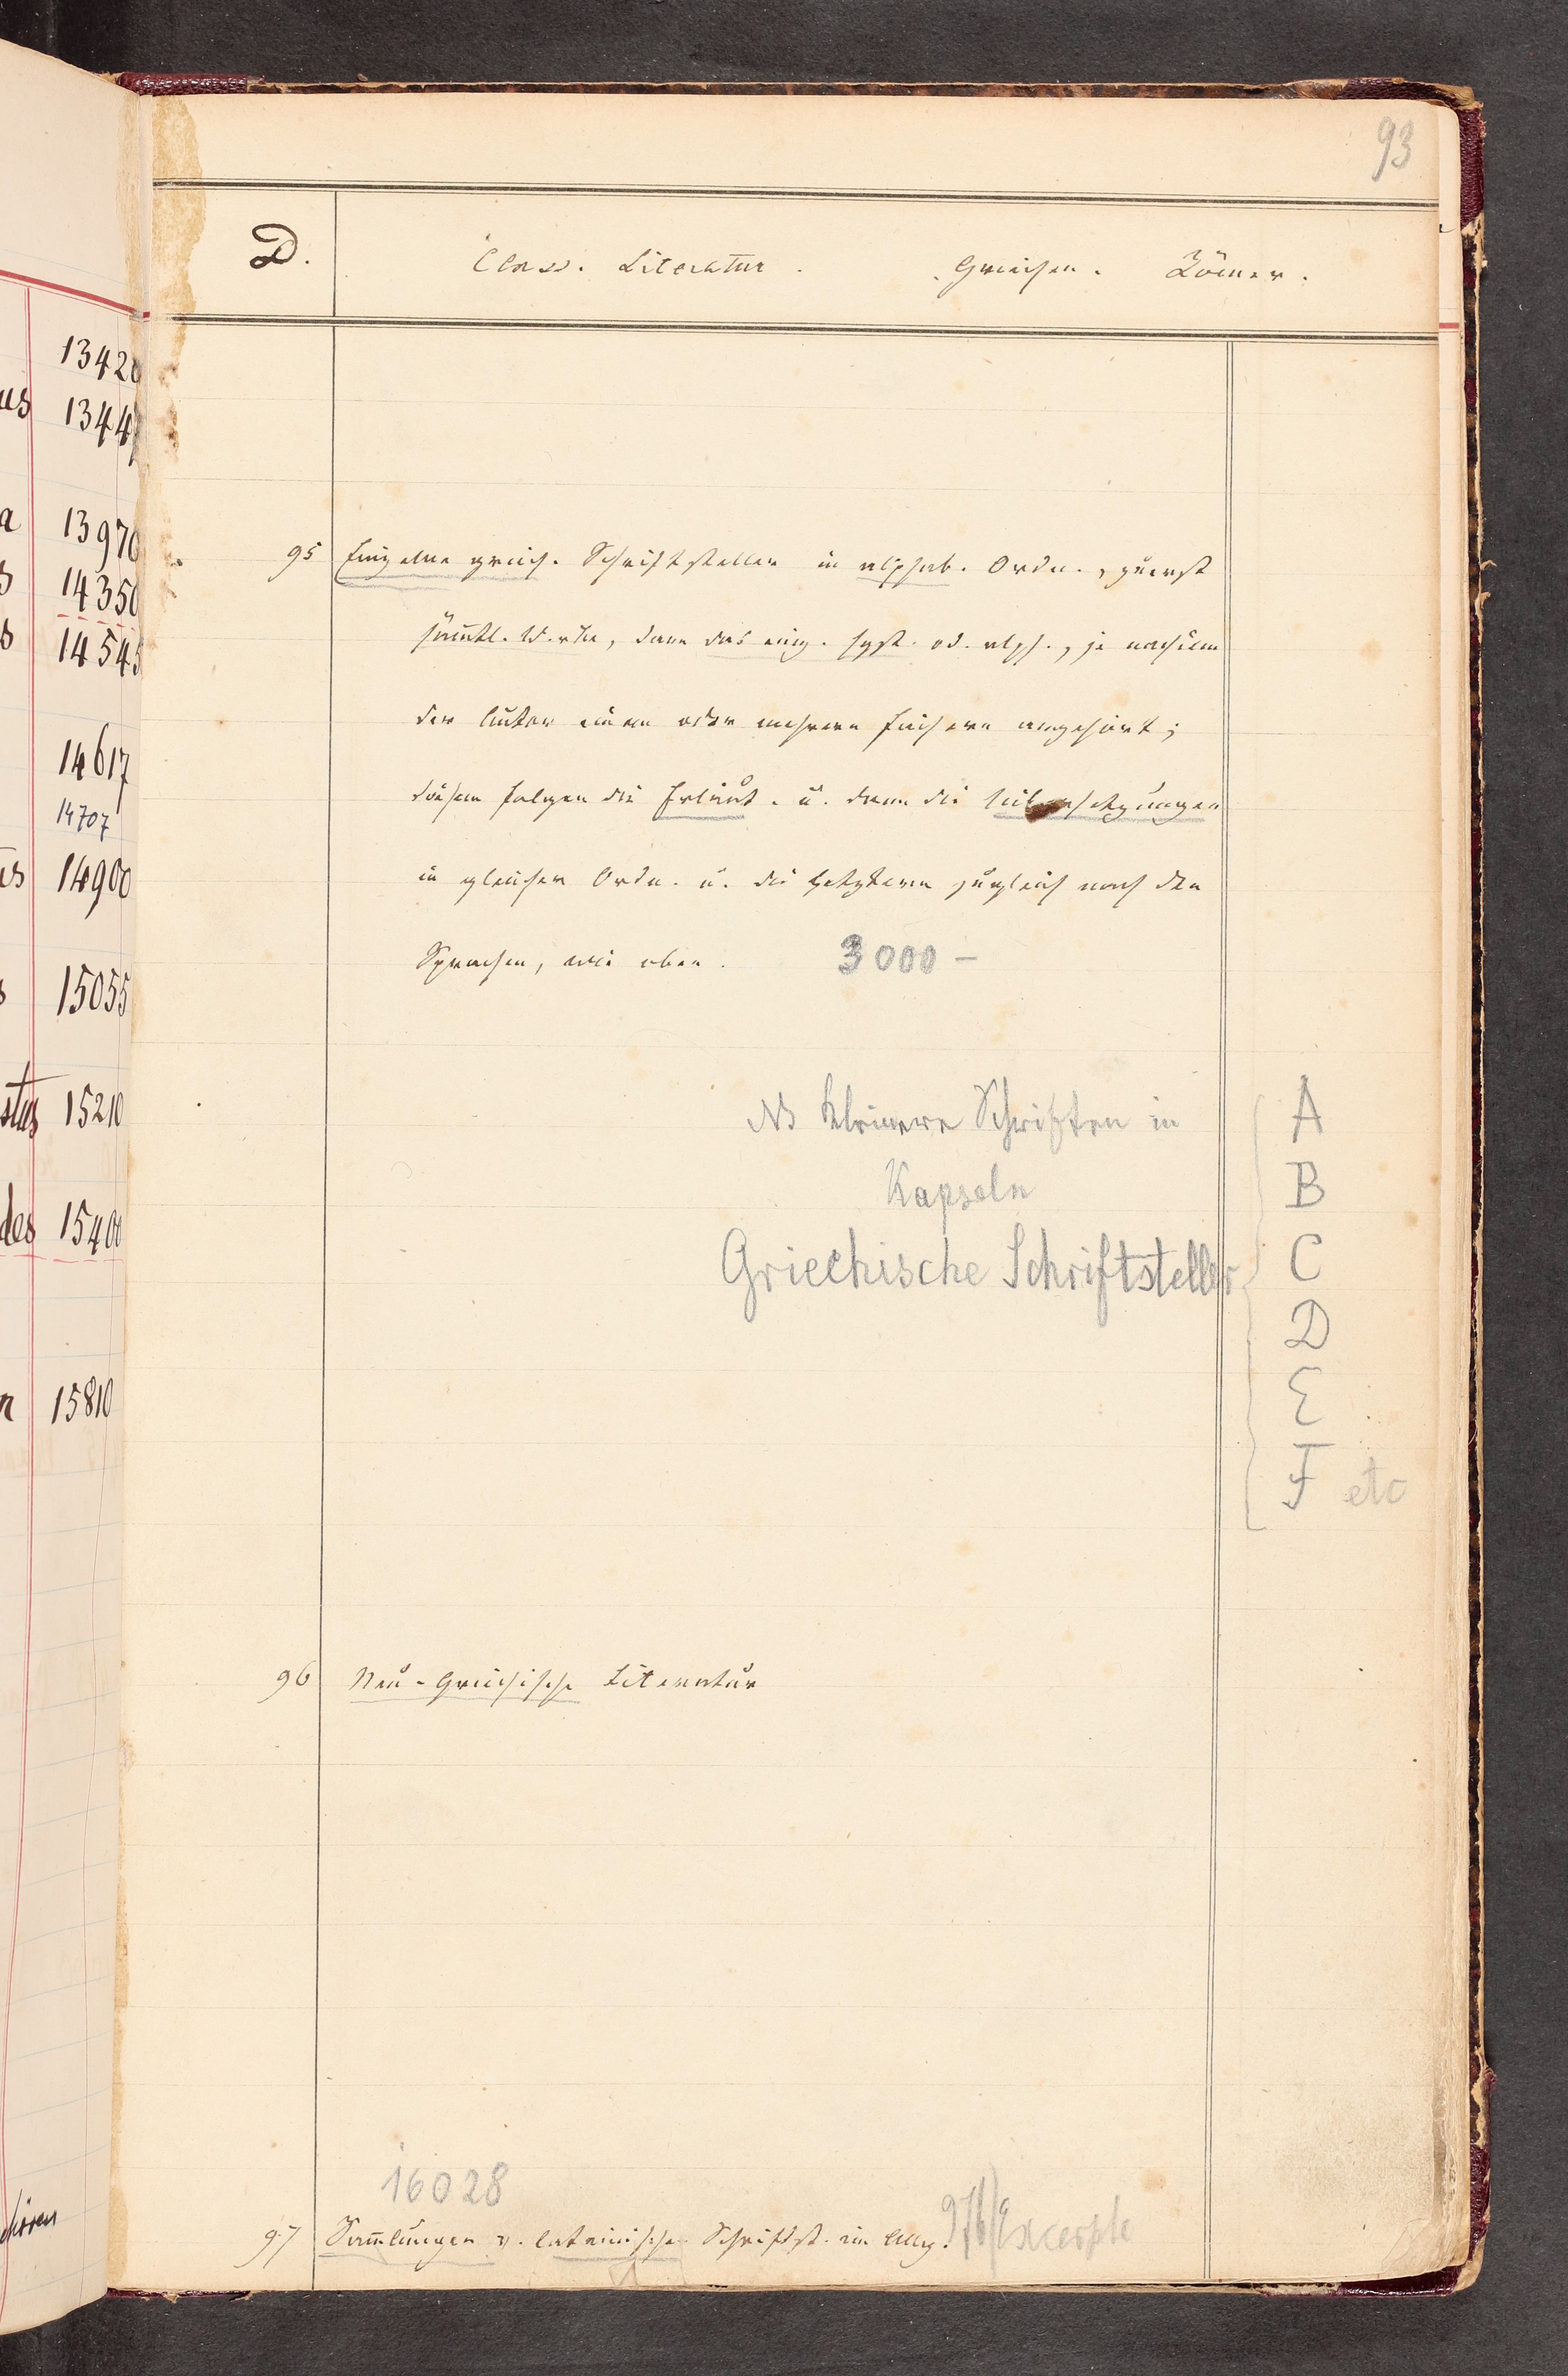 93
D.
Class. Literatur. Griechen. Römer.
13420
us 13447
a 13970
s 14350
s 14545
14617
14707
us 14900
s 15055
stus 15210
des 15400
n 15810
95 Einzelne griech. Schriftsteller in alphab. Ordn., zuerst
sämtl. Werke, dann das einz. syst. od. alph., je nachdem
der Autor einem oder mehrern Fächern angehört;
diesem folgen die Erläut. u. dann die Uebersetzungen
in gleicher Ordn. u. die Letztern zugleich nach den
Sprachen, wie oben. 3000 –
NB Kleinere Schriften in
Kapseln
Griechische Schriftsteller
A
B
C
D
E
F etc
96 Neu-Griechische Literatur
16028
97 Sam̄lungen v. lateinischen Schriftst. im Allg. 97b/Excerpte